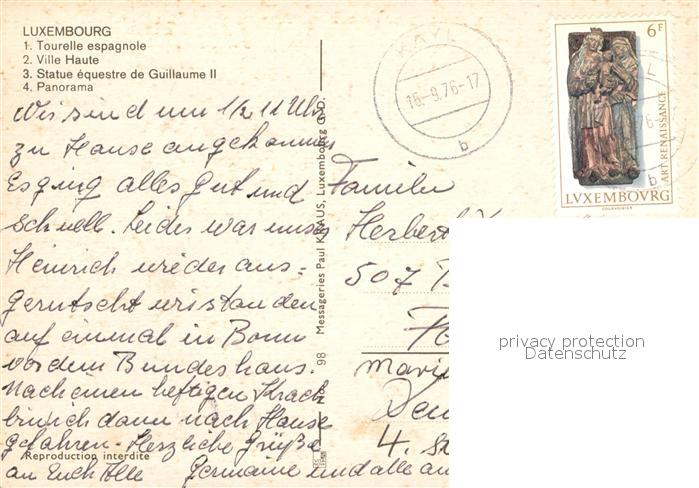 LUXEMBOURG
1. Tourelle espagnole
2. Ville Haute
3. Statue équestre de Guillaume II
4. Panorama
Wir sind um 1/2 11 Uhr
zu Hause angekommen
Es ging alles gut und
schnell. Leider war unser
Heinrich wieder aus=
gerutscht wir standen
auf einmal in Bonn
vor dem Bundeshaus.
Nach einem heftigen Krach
bin ich dann nach Hause
gefahren - Herzliche Grüße
Reproduction interdite
an Euch Alle Germaine und alle
No. 98 Messageries Paul KRAUS, Luxembourg G.-D.
KAYL
15.-9.76-17
b
6F
ART RENAISSANCE
LVXEMBOVRG
COURVOISIER
L
76
b
Familie
Herbert
507
4.
privacy protection
Datenschutz